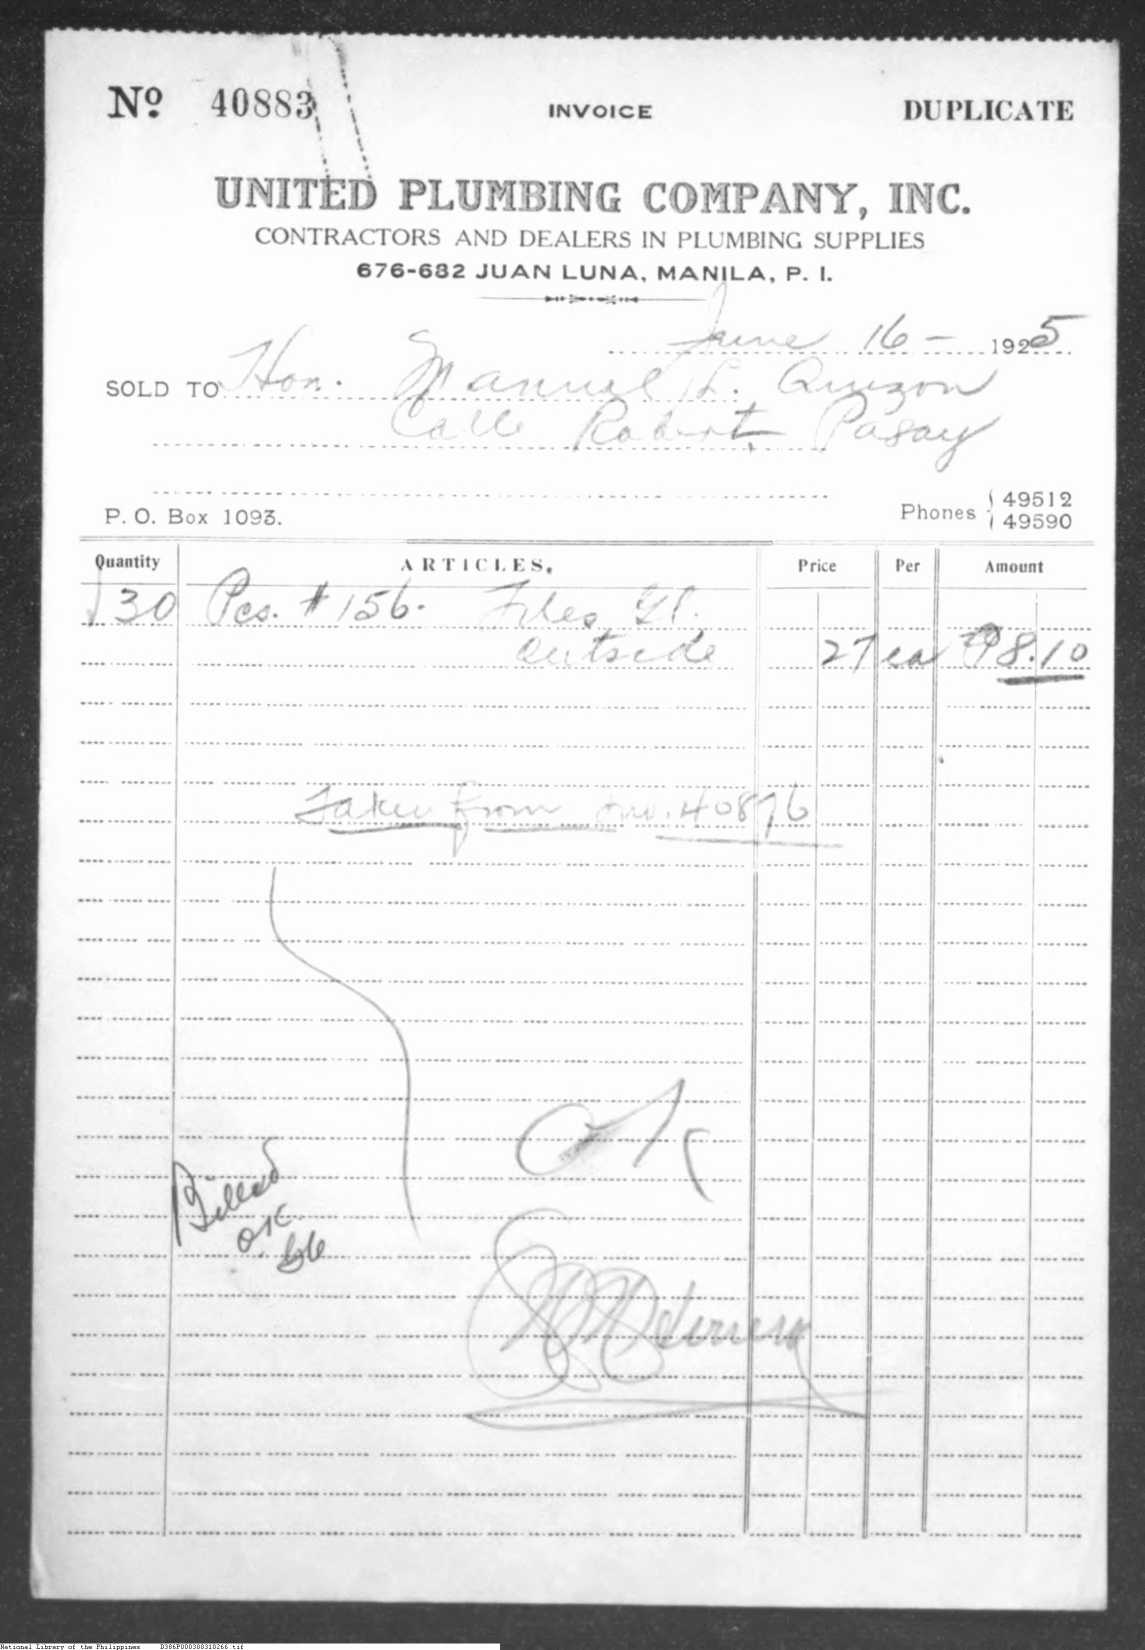 Nº 40883 INVOICE DUPLICATE
UNITED PLUMBING COMPANY, INC.
CONTRACTORS AND DEALERS IN PLUMBING SUPPLIES
676-682 JUAN LUNA, MANILA, P. I.
June 16 - 1925
SOLD TO Hon. Manuel L. Quezon
Calle Robert, Pasay
P. O. Box 1093. Phones 49512
49590
Quantity ARTICLES. Price Per Amount
30 Pcs. # 156. Tiles
outside 27 ea ₱8.10
Taken from Inv. 40876
OK
Billed
OK
National Library of the Philippines D386P000300310266.tif